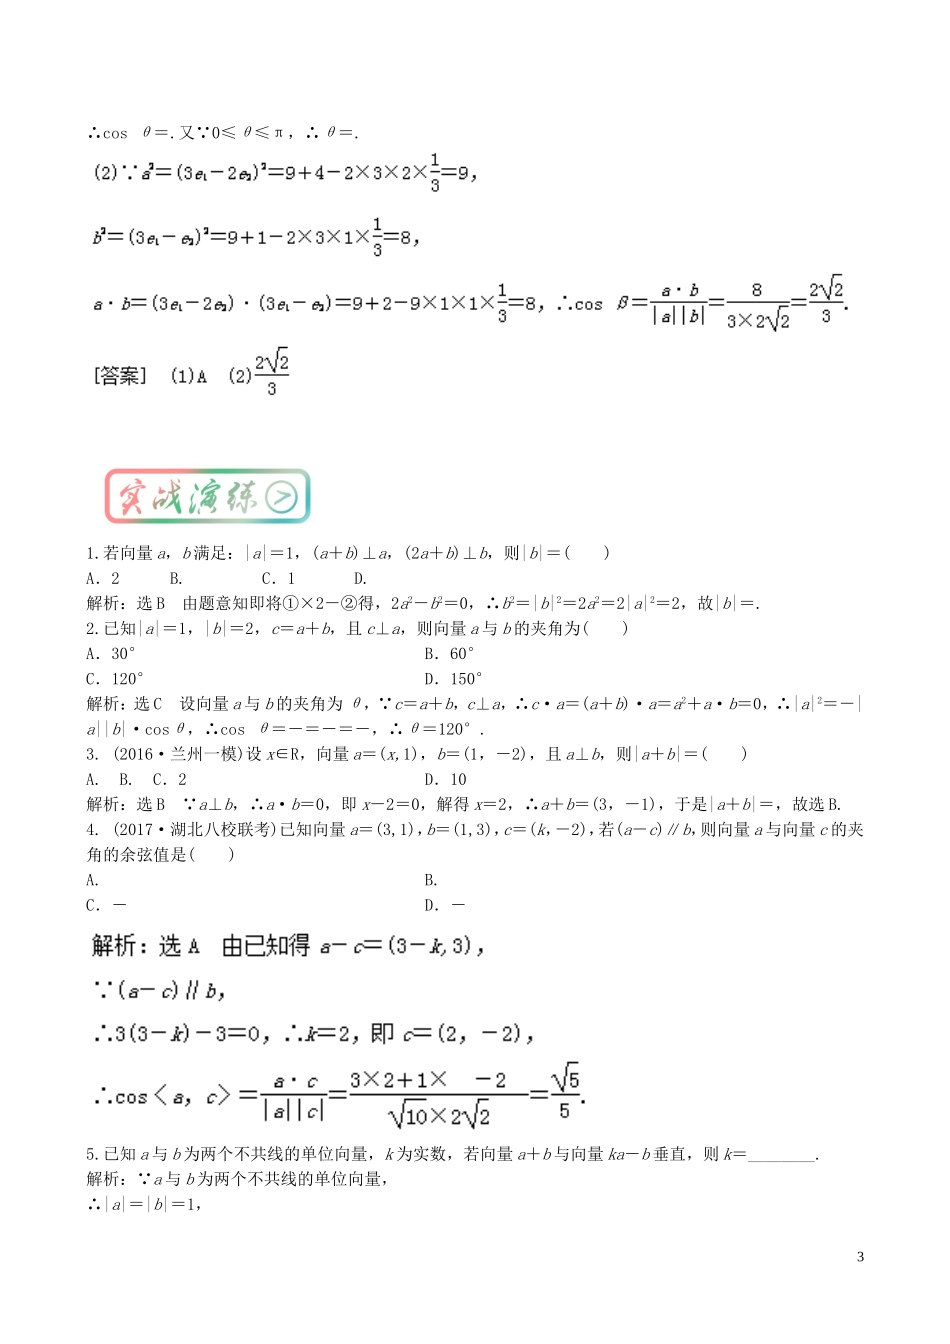 ∴cos θ=.又∵0≤θ≤π,∴θ=.
(2)∵a²=(3e₁-2e₂)²=9+4-2×3×2×1/3=9,
b²=(3e₁-e₂)²=9+1-2×3×1×1/3=8,
a·b=(3e₁-2e₂)·(3e₁-e₂)=9+2-9×1×1×1/3=8,∴cos β=a·b/|a||b|=8/3×2√2=2√2/3.
[答案] (1)A (2)2√2/3
实战演练
1.若向量a,b满足:|a|=1,(a+b)⊥a,(2a+b)⊥b,则|b|=( )
A.2 B. C.1 D.
解析:选B 由题意知即将①×2-②得,2a²-b²=0,∴b²=|b|²=2a²=2|a|²=2,故|b|=.
2.已知|a|=1,|b|=2,c=a+b,且c⊥a,则向量a与b的夹角为( )
A.30° B.60°
C.120° D.150°
解析:选C 设向量a与b的夹角为θ,∵c=a+b,c⊥a,∴c·a=(a+b)·a=a²+a·b=0,∴|a|²=-|
a||b|·cosθ,∴cos θ=-=-=-,∴θ=120°.
3. (2016·兰州一模)设x∈R,向量a=(x,1),b=(1,-2),且a⊥b,则|a+b|=( )
A. B. C.2 D.10
解析:选B ∵a⊥b,∴a·b=0,即x-2=0,解得x=2,∴a+b=(3,-1),于是|a+b|=,故选B.
4. (2017·湖北八校联考)已知向量a=(3,1),b=(1,3),c=(k,-2),若(a-c)∥b,则向量a与向量c的夹
角的余弦值是( )
A. B.
C.- D.-
解析:选A 由已知得a-c=(3-k,3),
∵(a-c)∥b,
∴3(3-k)-3=0,∴k=2,即c=(2,-2),
∴cos〈a,c〉=a·c/|a||c|=3×2+1× -2/√10×2√2=√5/5.
5.已知a与b为两个不共线的单位向量,k为实数,若向量a+b与向量ka-b垂直,则k=________.
解析:∵a与b为两个不共线的单位向量,
∴|a|=|b|=1,
3